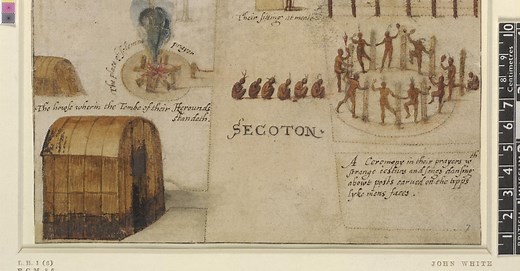 Their sitting at meate
The place of solemne prayer
The howse wherin the Tombe of their Herounds
standeth.
SECOTON.
A Ceremony in their prayers wth
strange iestures and songs dansing
abowt posts carued on the topps
lyke mens faces.
7
L. B. 1 (6)
JOHN WHITE
10
9
8
Centimetres
7
6
5
4
3
2
1